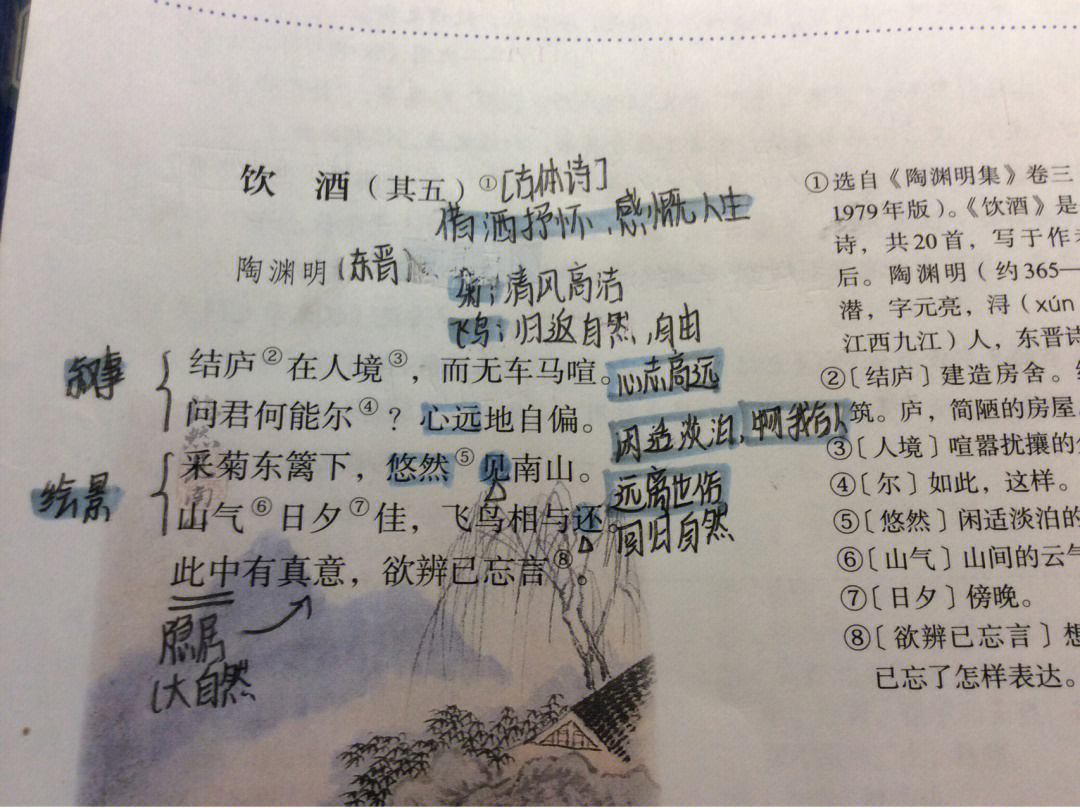 饮 酒（其五）①[古体诗]
借酒抒怀、感慨人生
陶渊明(东晋)
菊：清风高洁
飞鸟：归返自然，自由
叙事
结庐②在人境③，而无车马喧。心志高远
问君何能尔④？心远地自偏。
闲适淡泊，
采菊东篱下，悠然⑤见南山。
绘景
远离世俗
山气⑥日夕⑦佳，飞鸟相与还。
回归自然
此中有真意，欲辨已忘言⑧。
隐居
(大自然
①选自《陶渊明集》卷三
1979年版）。《饮酒》是
诗，共20首，写于作
后。陶渊明（约365—
潜，字元亮，浔（xún
江西九江）人，东晋
②〔结庐〕建造房舍。
筑。庐，简陋的房屋
③〔人境〕喧嚣扰攘的
④〔尔〕如此，这样。
⑤〔悠然〕闲适淡泊的
⑥〔山气〕山间的云气
⑦〔日夕〕傍晚。
⑧〔欲辨已忘言〕想
已忘了怎样表达。